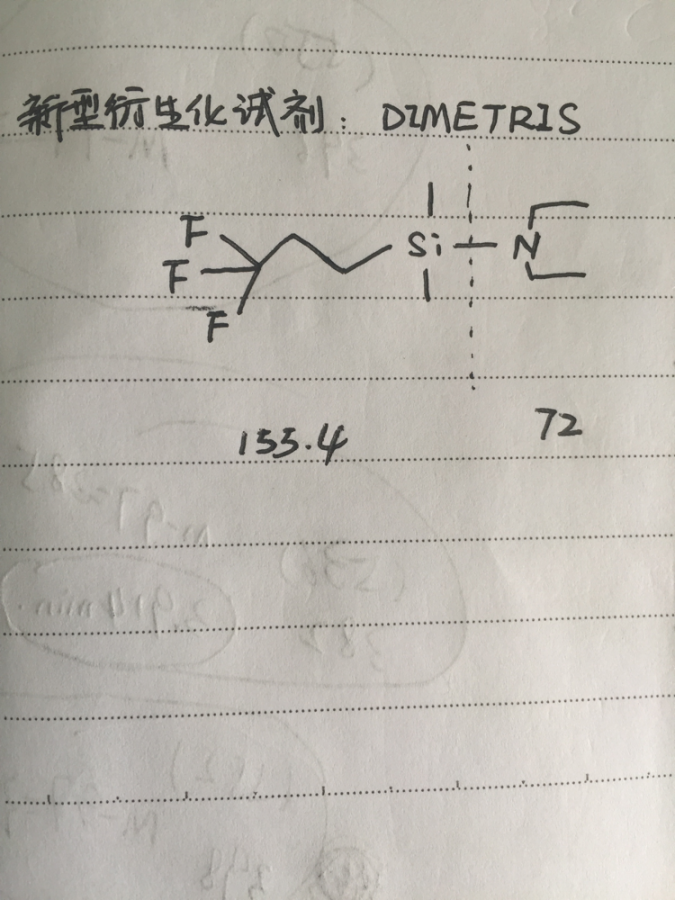 新型衍生化试剂：DIMETRIS
F
F
F
Si
N
155.4
72